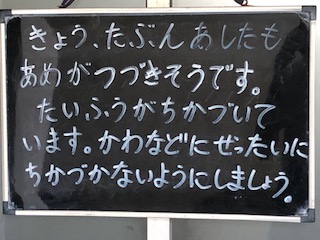 きょう、たぶんあしたも
あめがつづきそうです。
たいふうがちかづいて
います。かわなどにぜったいに
ちかづかないようにしましょう。